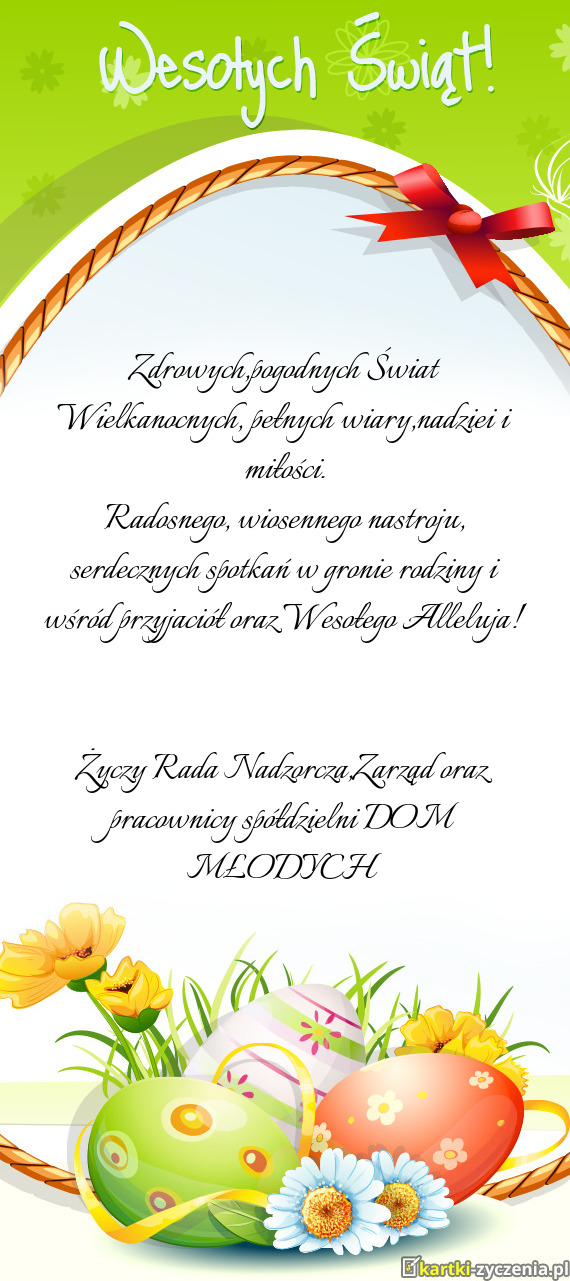 Wesołych Świąt!
Zdrowych,pogodnych Świat
Wielkanocnych, pełnych wiary,nadziei i
miłości.
Radosnego, wiosennego nastroju,
serdecznych spotkań w gronie rodziny i
wśród przyjaciół oraz Wesołego Alleluja!
Życzy Rada Nadzorcza,Zarząd oraz
pracownicy spółdzielni DOM
MŁODYCH
kartki-zyczenia.pl